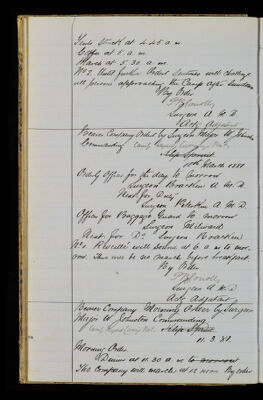 Tents Struck at 4.45 a.m.
Coffee at 5 a.m.
March at 5.30 a.m.
No 2. Until further Orders Sentries will challenge
all persons approaching the Camp after Sundown
By Order
Surgeon A M D
Acty Adjutant
Bearer Company Orders by Surgeon Major W Johnston
Commanding Camp
10th March 1881
Orderly Officer for the day to morrow
Surgeon A. M. D.
Next for Duty
Surgeon A M D.
Officer for Baggage Guard to morrow
Surgeon Milward
Next for Do Surgeon
No 2 Reveille will sound at 6 a m to mor-
row. There will be no march before breakfast.
By Order
Surgeon A M D
Acty Adjutant
Bearer Company Morning Orders by Surgeon
Major W Johnston Commanding
Camp
11. 3. 81.
Morning Orders
Dinner at 11.30 a m to morrow
The Company will march at 12 noon By order